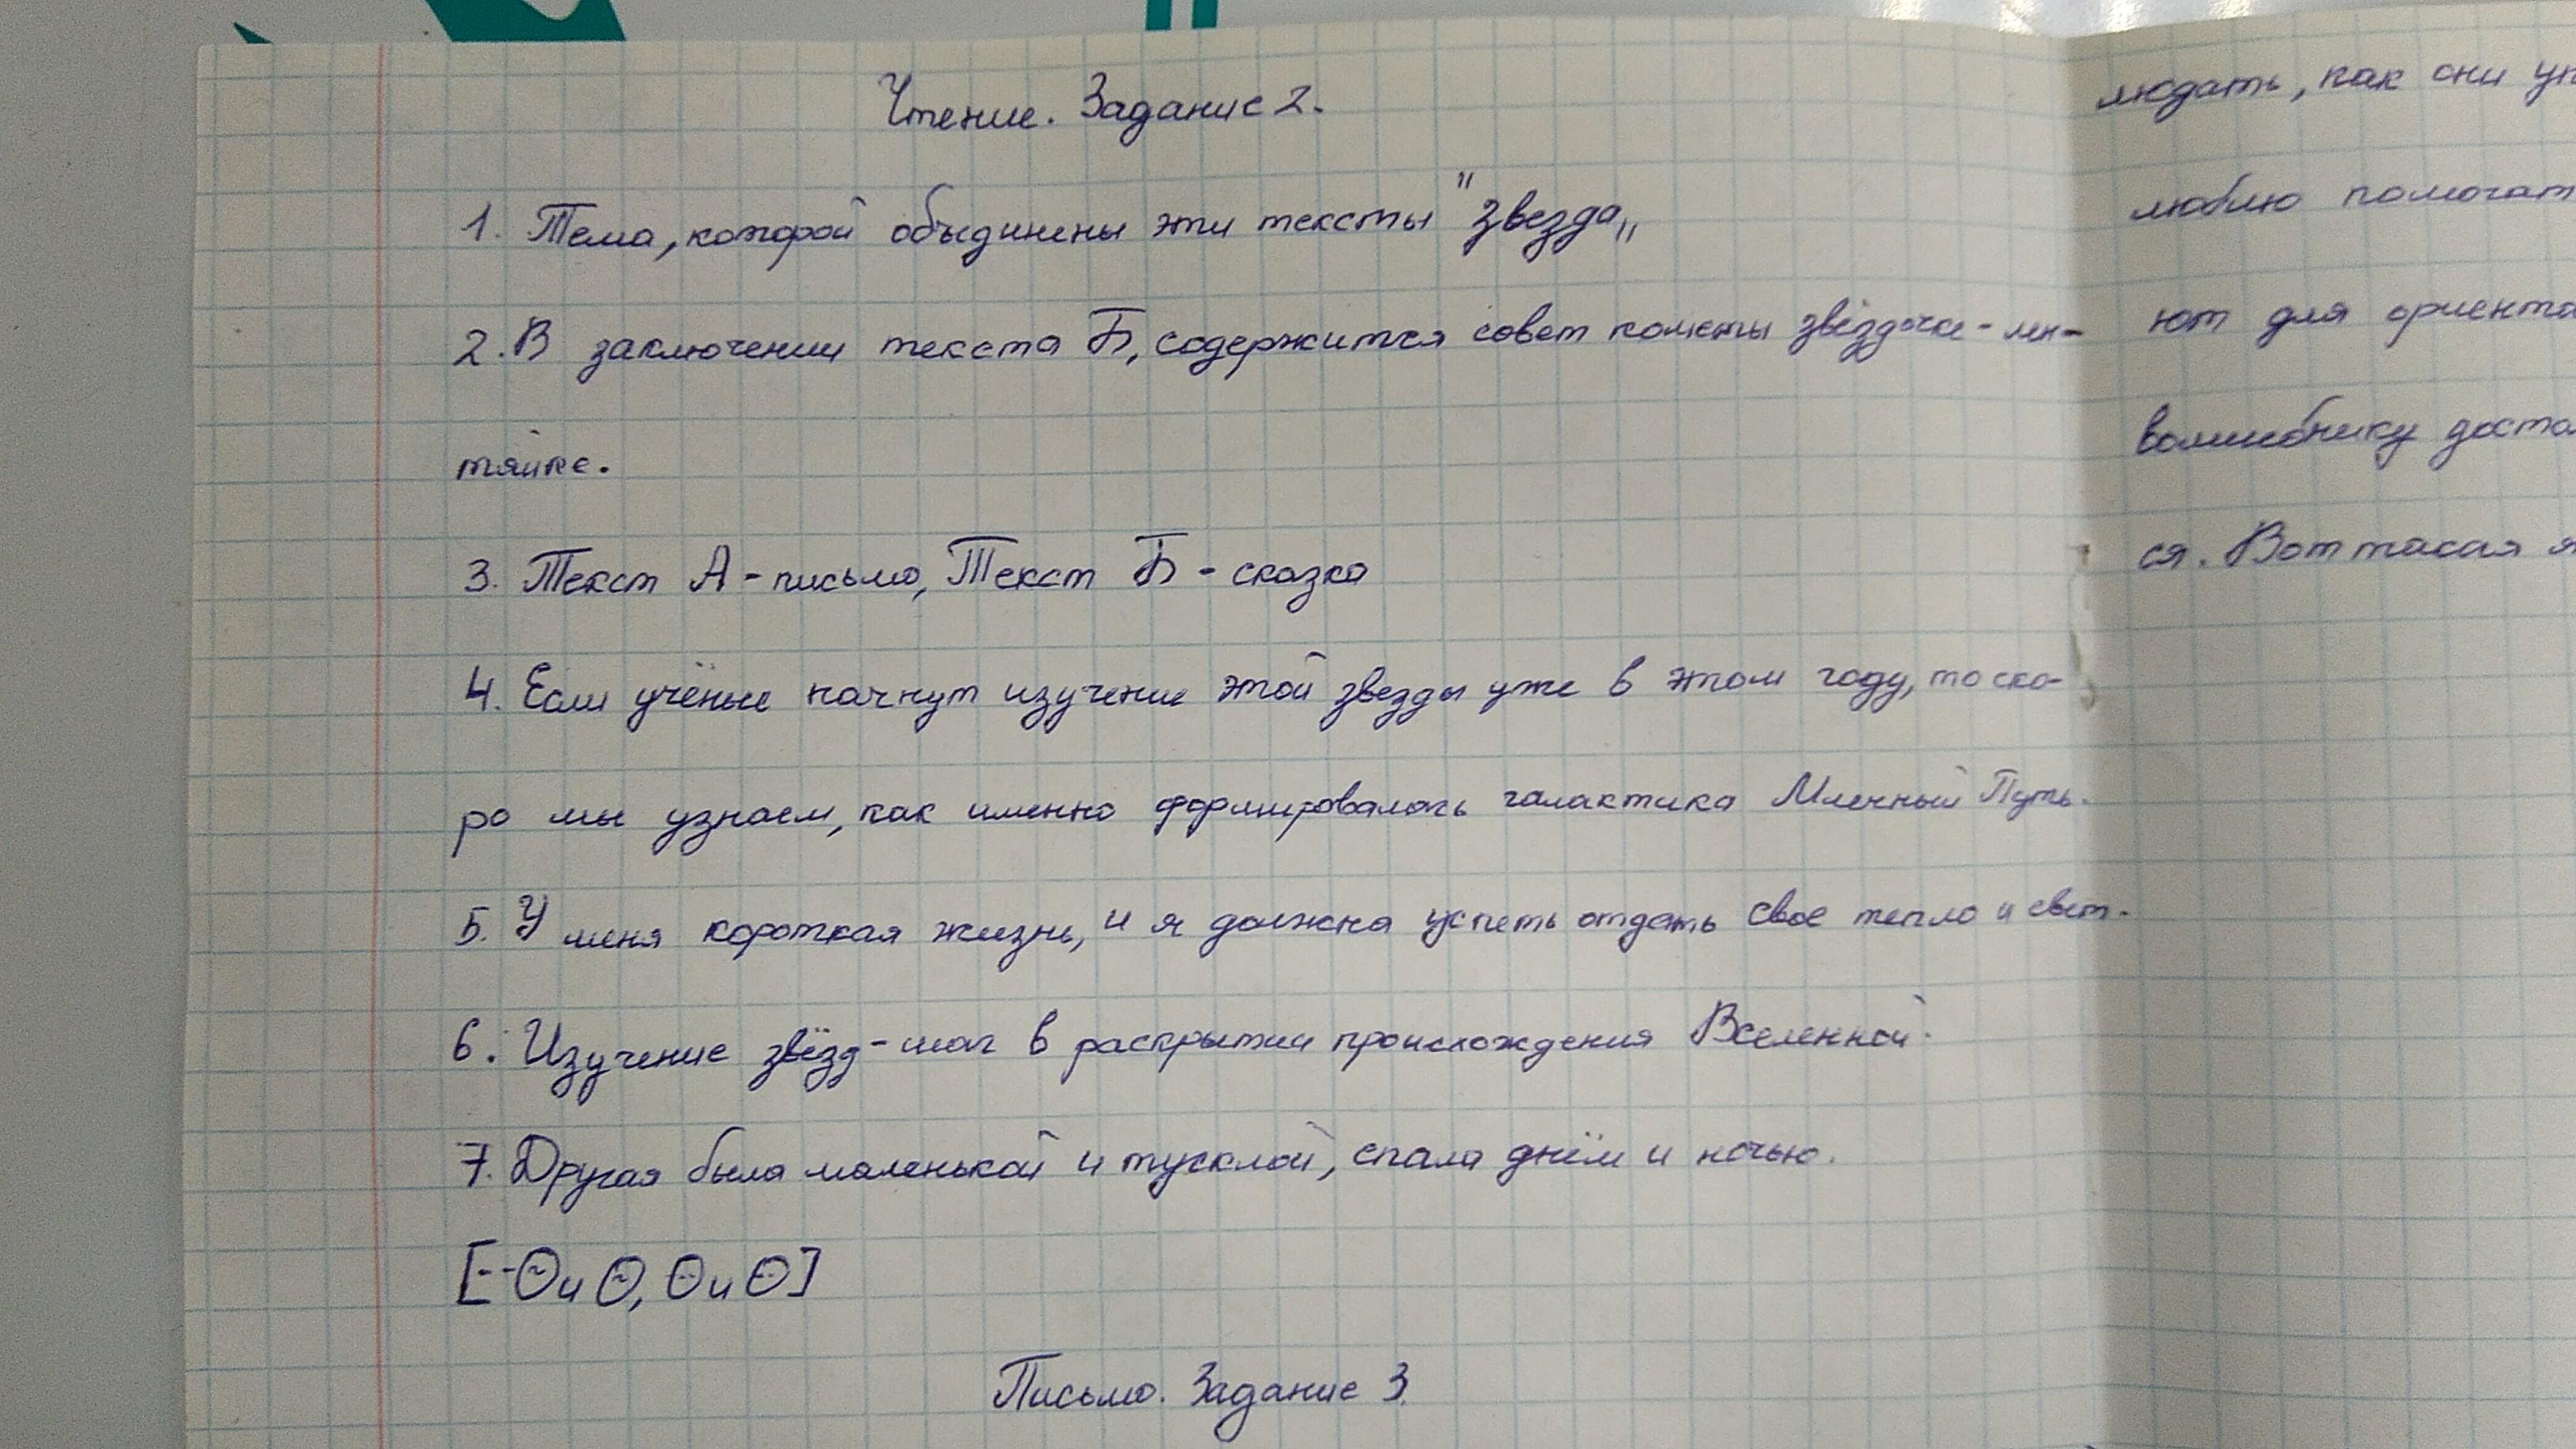 Чтение. Задание 2.
1. Тема, которой объединены эти тексты "звезда"
2. В заключении текста Б, содержится совет кометы звёздочке-лен-
тяйке.
3. Текст А - письмо, Текст Б - сказка
4. Если учёные начнут изучение этой звезды уже в этом году, то ско-
ро мы узнаем, как именно формировалась галактика Млечный Путь.
5. У меня короткая жизнь, и я должна успеть отдать свое тепло и свет.
6. Изучение звёзд - шаг в раскрытии происхождения Вселенной.
7. Другая была маленькой и тусклой, спала днём и ночью.
[-- О и О, О и О]
Письмо. Задание 3.
людать, как они
люблю
ют для
волшебнику
ся. Вот такая я